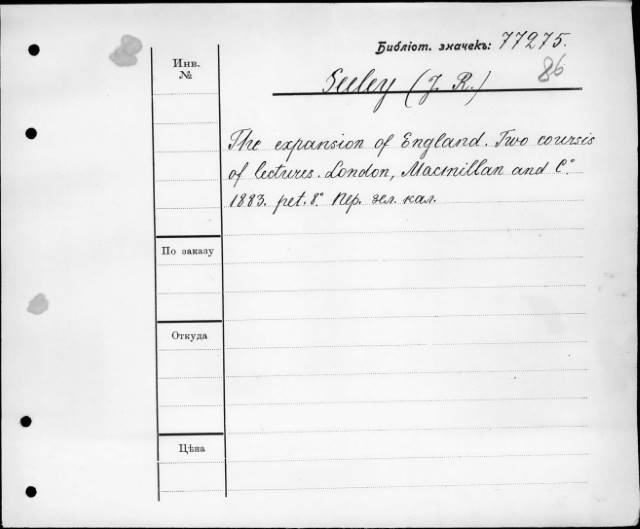 Библіот. значекъ: 77275.
86
Инв.
№
Seeley (J. R.)
The expansion of England. Two coursis
of lectures. London, Macmillan and C°.
1883. pet. 8° Пер. зел. кал.
По заказу
Откуда
Цѣна